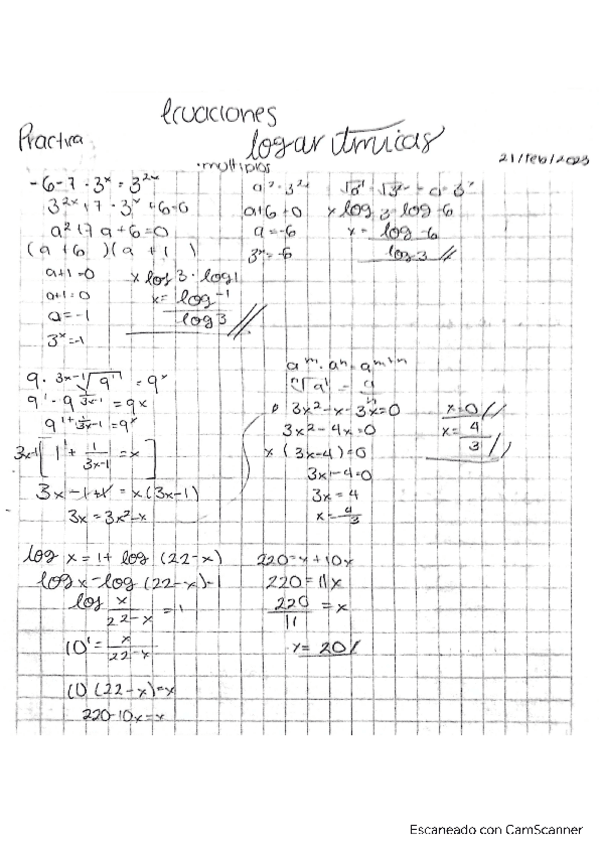 ecuaciones
Practica
logaritmicas
21/feb/2023
·multiplos
-6-7·3ˣ=3²ˣ
3²ˣ+7·3ˣ+6=0
a²+7a+6=0
(a+6)(a+1)
a+1=0
a+1=0
a=-1
3ˣ=-1
x log 3 · log 1
x= log -1
log 3
a²·3²ˣ
a+6+0
a=-6
3ˣ=-6
x log 3 · log -6
x= log -6
log 3
9·³ˣ⁻¹√9¹=9ˣ
9¹·9 1/3x-1=9x
9¹⁺ 1/3x-1=9ˣ
3x-1[1+ 1/3x-1 =x]
3x-1+1=x(3x-1)
3x=3x²-x
aᵐ·aⁿ=aᵐ⁺ⁿ
3x²-x-3x=0
3x²-4x=0
x(3x-4)=0
3x-4=0
3x=4
x=4/3
x=0//
x=4/3//
log x=1+log (22-x)
log x-log (22-x)=1
log x/22-x =1
10¹= x/22-x
10(22-x)=x
220-10x=x
220=x+10x
220=11x
220/11 =x
x=20/
Escaneado con CamScanner